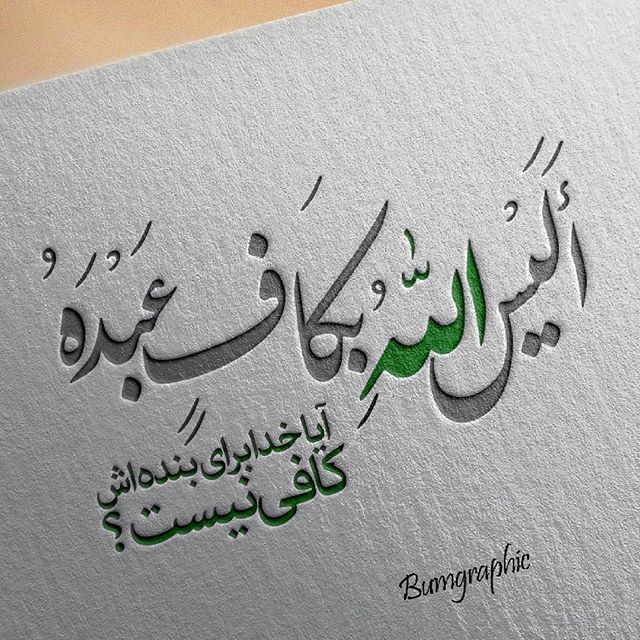 أَلَيْسَ اللّٰهُ بِكَافٍ عَبْدَهُ
آیا خدا برای بنده‌اش
کافی نیست؟
Bumgraphic